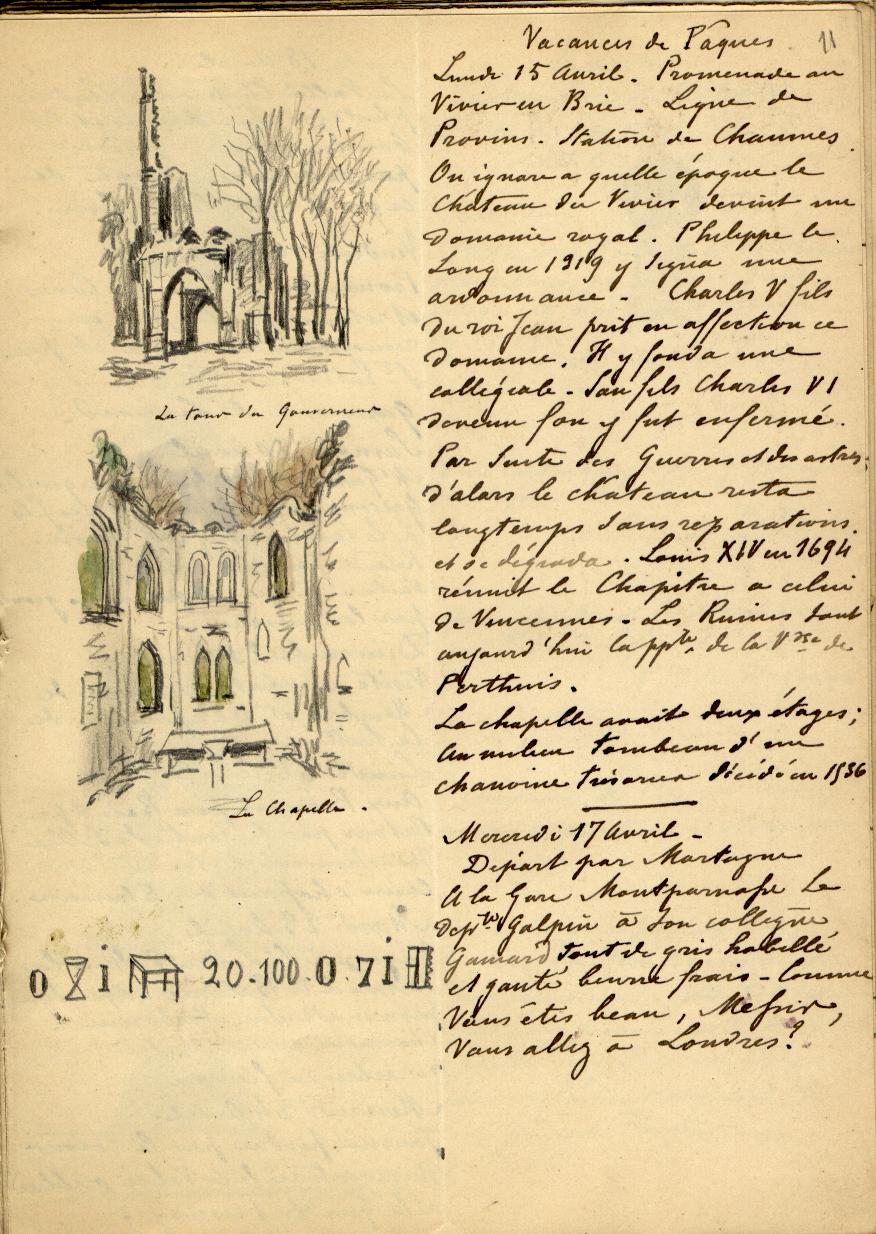 11
Vacances de Pâques
Lundi 15 Avril. Promenade au
Vivier en Brie - Ligne de
Provins. Station de Chaumes
On ignore a quelle époque le
Château du Vivier devint un
domaine royal. Philippe le
Long en 1319 y signa une
ordonnance. Charles V fils
du roi Jean prit en affection ce
domaine. Il y fonda une
collégiale. Son fils Charles VI
devenu fou y fut enfermé.
Par suite des Guerres et des
d'alors le château resta
longtemps sans reparations
et se dégrada. Louis XIV en 1694
réunit le Chapitre a celui
de Vincennes. Les Ruines sont
aujourd'hui la ppté de la Vsse de
Perthuis.
La chapelle avait deux étages;
Au milieu tombeau d'un
chanoine trésorier décédé en 1536
Mercredi 17 Avril -
Départ par Mortagne
A la Gare Montparnasse Le
Galpin à son collègue
Gamard tout de gris habillé
et ganté beurre frais - Comme
Vous êtes beau, Messir,
Vous allez à Londres?
La tour du Gouverneur
La Chapelle.
20.100.0.7